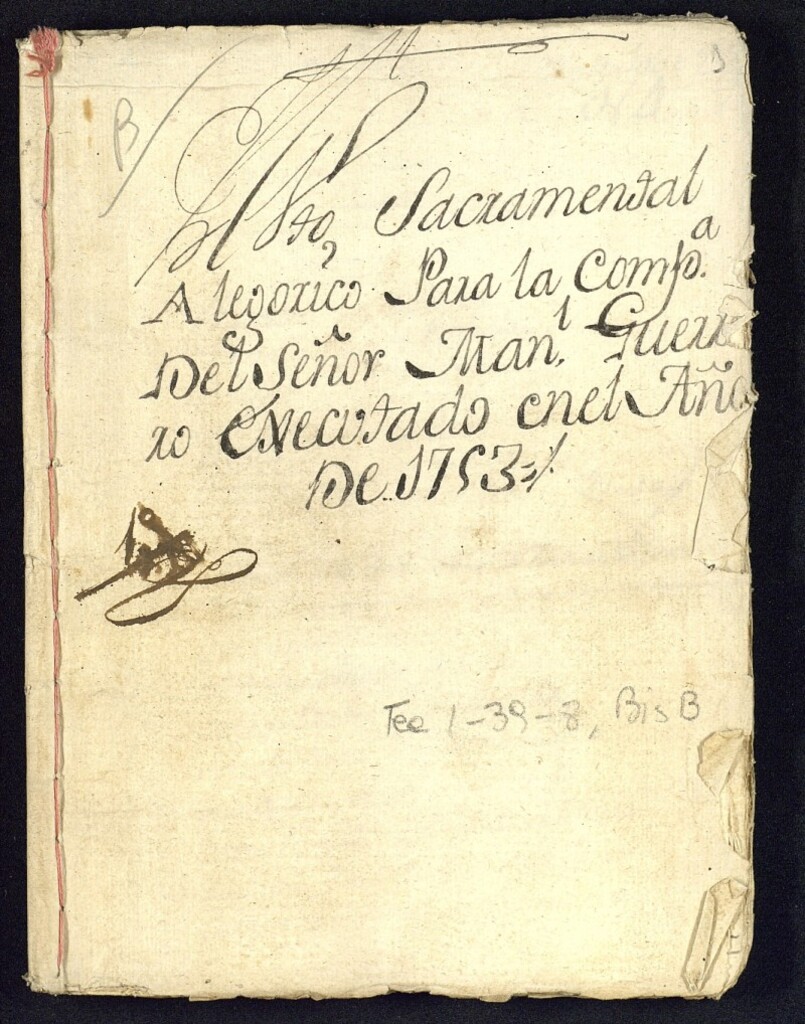 B
Auto Sacramental
Alegorico Para la Comp.ª
Del Señor Man.l Guerre
ro Executado enel Año
De 1753=/.
Tea 1-39-8, Bis B